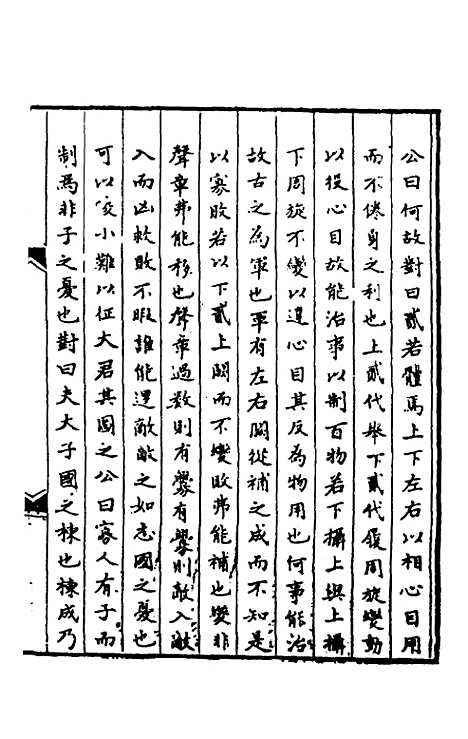 公曰何故對曰貳若體焉上下左右以相心目用
而不倦身之利也上貳代舉下貳代履周旋變動
以役心目故能治事以制百物若下攝上與上攝
下周旋不變以違心目其反為物用也何事能治
故古之為軍也軍有左右闕從補之成而不知是
以寡敗若以下貳上闕而不變敗弗能補也變非
聲章弗能移也聲章過數則有釁有釁則敵入敵
入而凶救敗不暇誰能退敵敵之如志國之憂也
可以陵小難以征大君其圖之公曰寡人有子而
制焉非子之憂也對曰夫大子國之棟也棟成乃